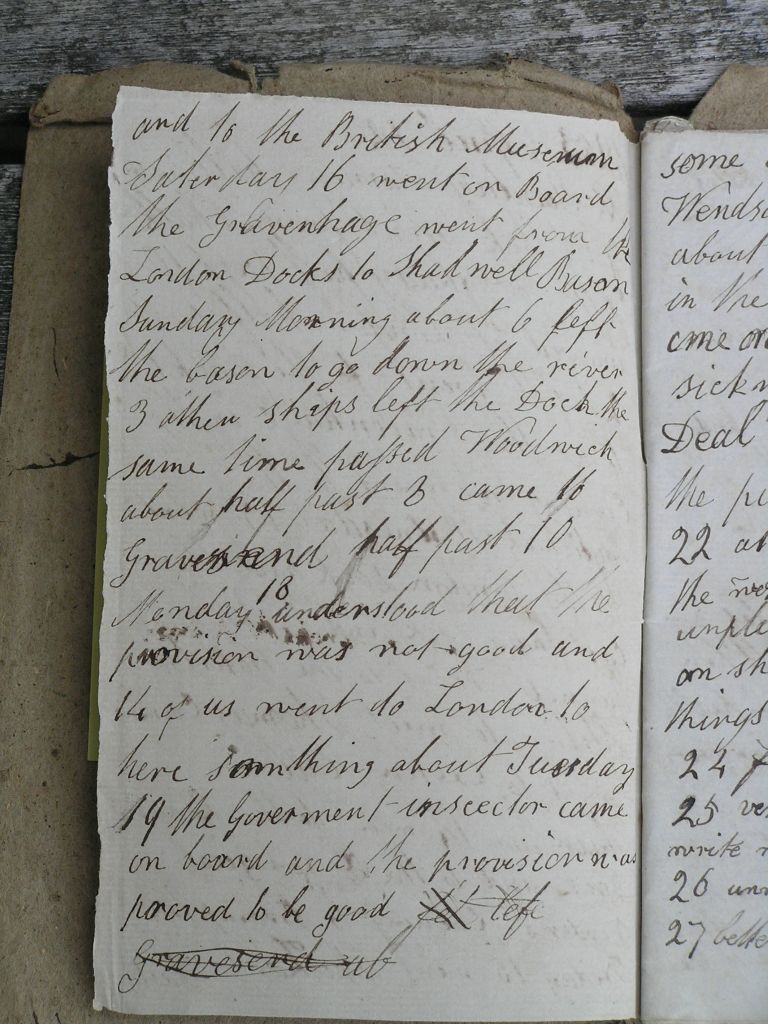 and to the British Museum
Saterday 16 went on Board
the Gravenhage went from the
London Docks to Shadwell Bason
Sunday Morning about 6 left
the bason to go down the river
3 other ships left the Dock the
same time passed Woodwich
about half past 3 came to
Gravesend half past 10
Monday 18 understood that the
provision was not good and
14 of us went to London to
here somthing about Tuesday
19 the Goverment insecctor came
on board and the provision was
proved to be good left
Gravesend ab
some
Wendsd
about
in the
came on
sickn
Deal
the pi
22 at
the
unple
on sh
things
24
25 ver
write
26 unw
27 bette